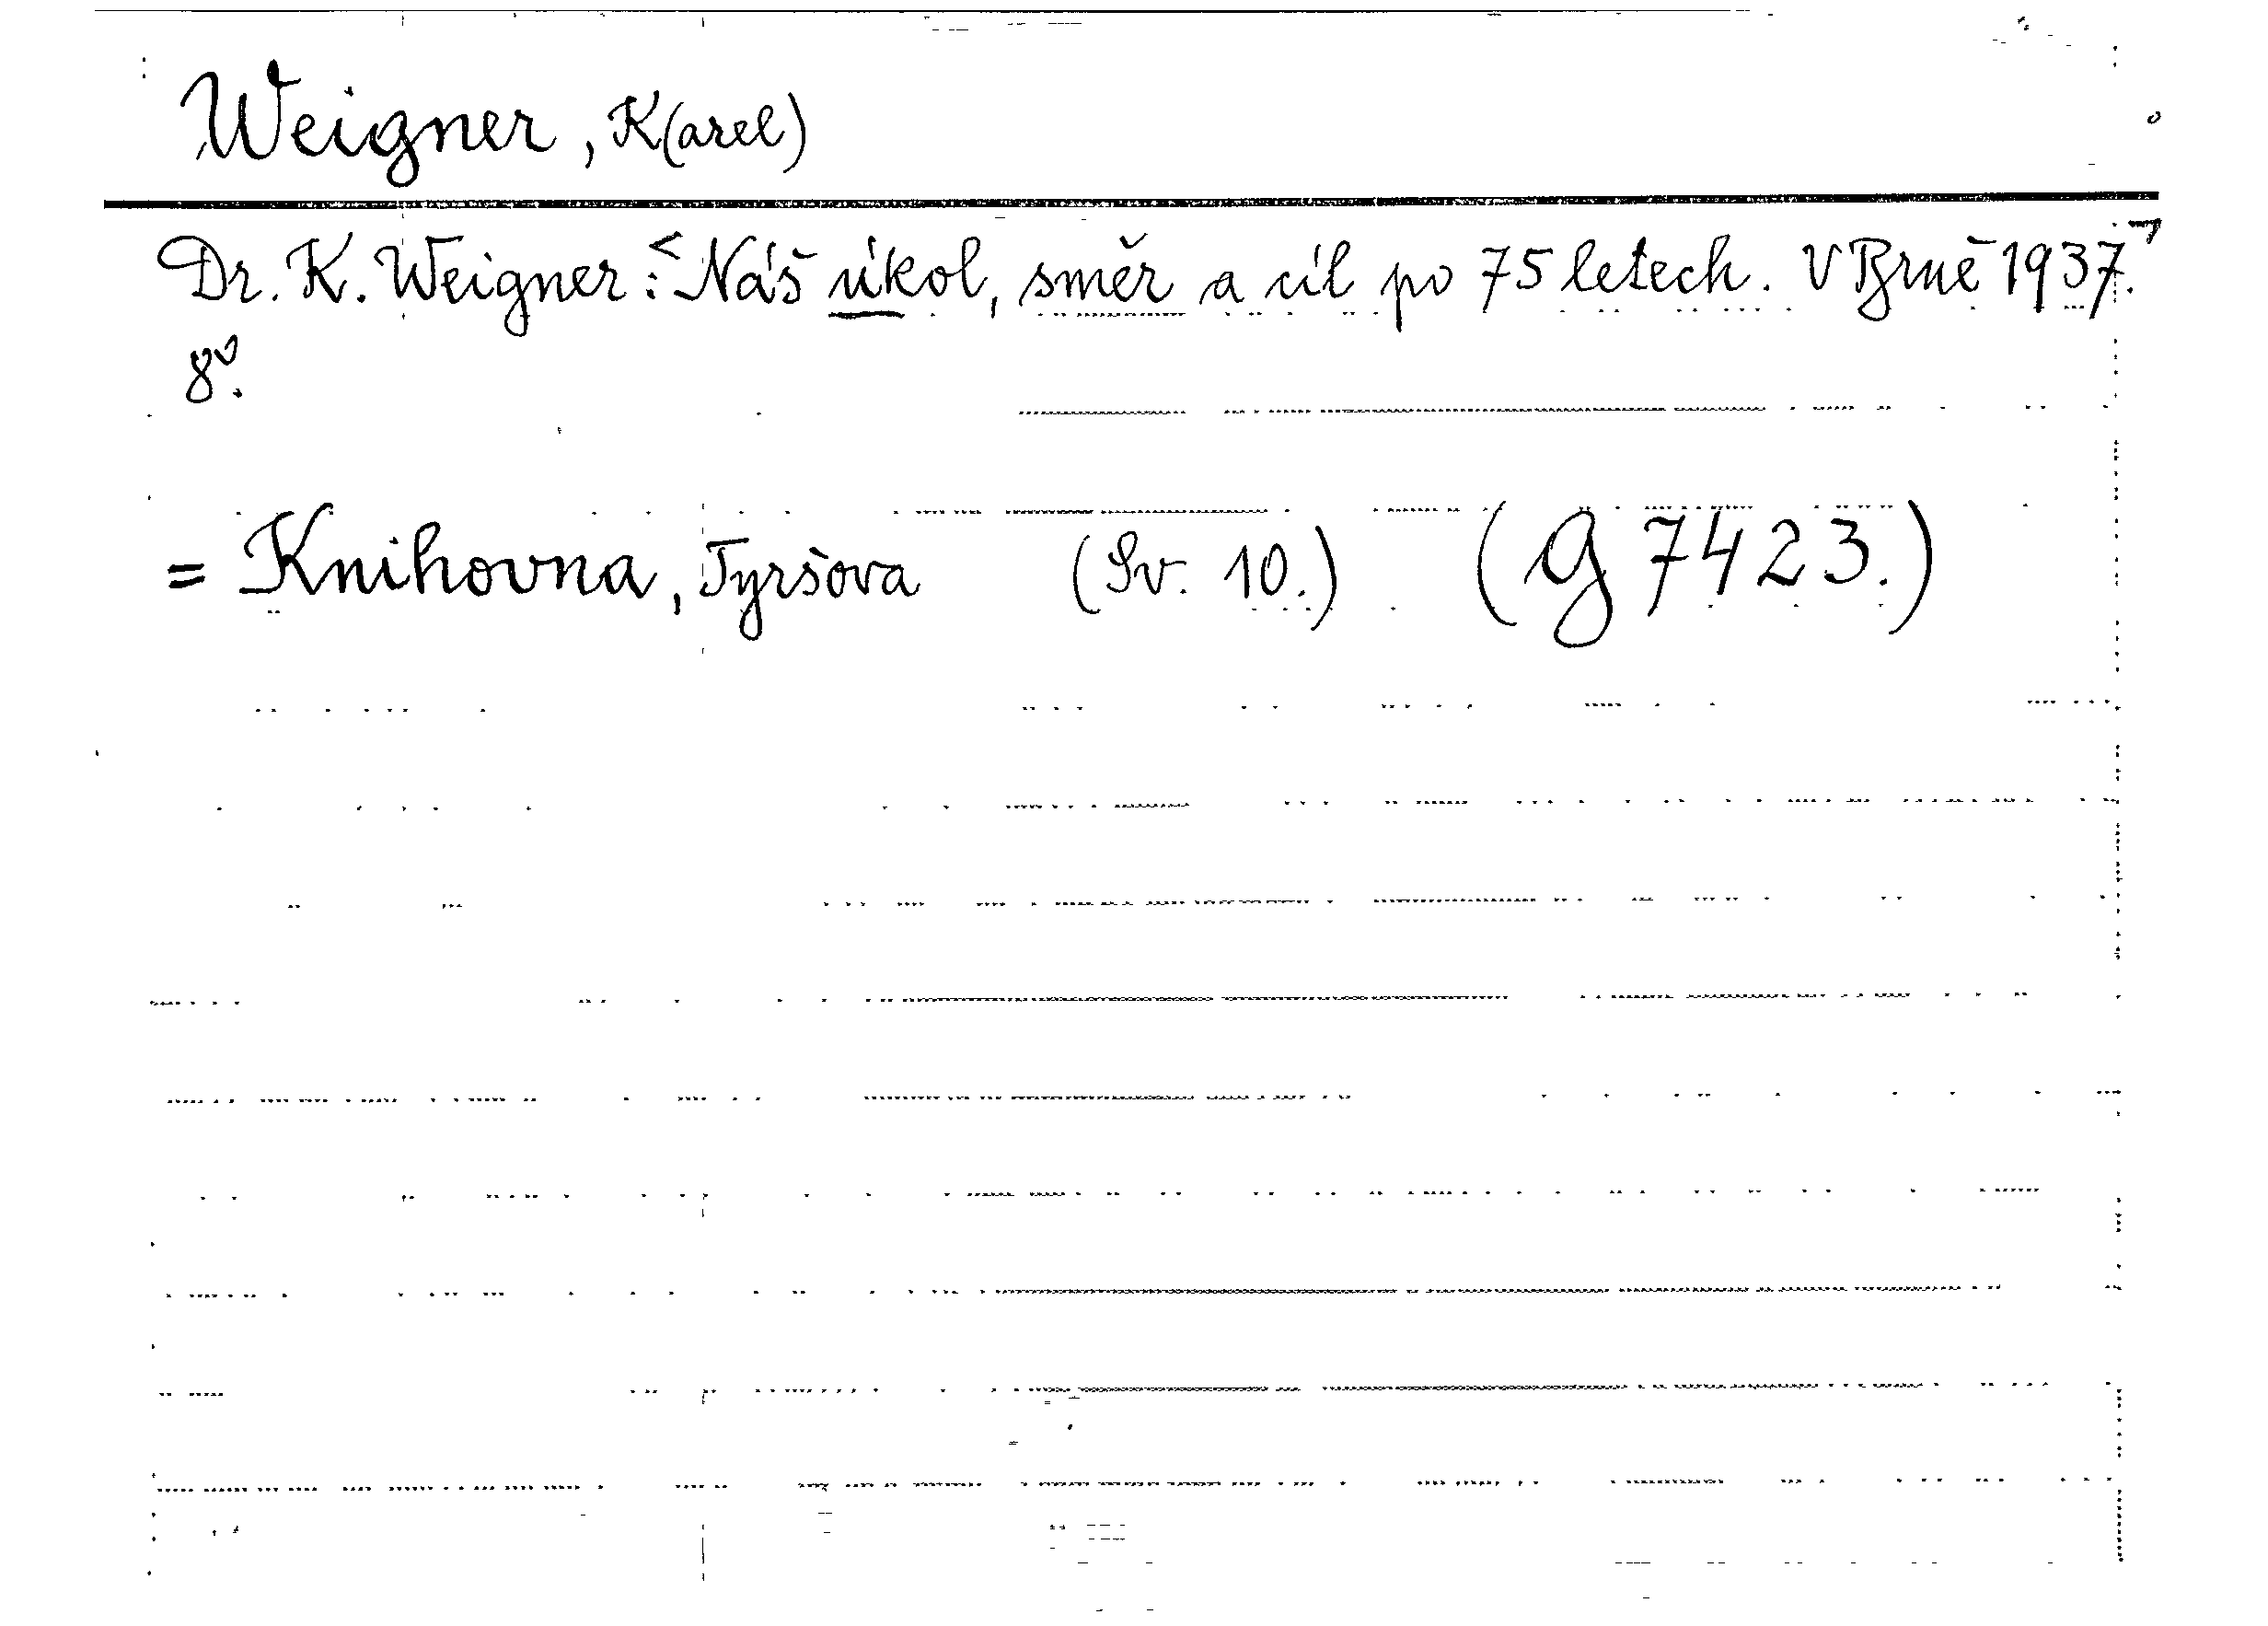 Weigner, K(arel)
Dr. K. Weigner: Náš úkol, směr a cíl po 75 letech. V Brně 1937.
8°.
= Knihovna, Tyršova (Sv. 10.) (G 7423.)